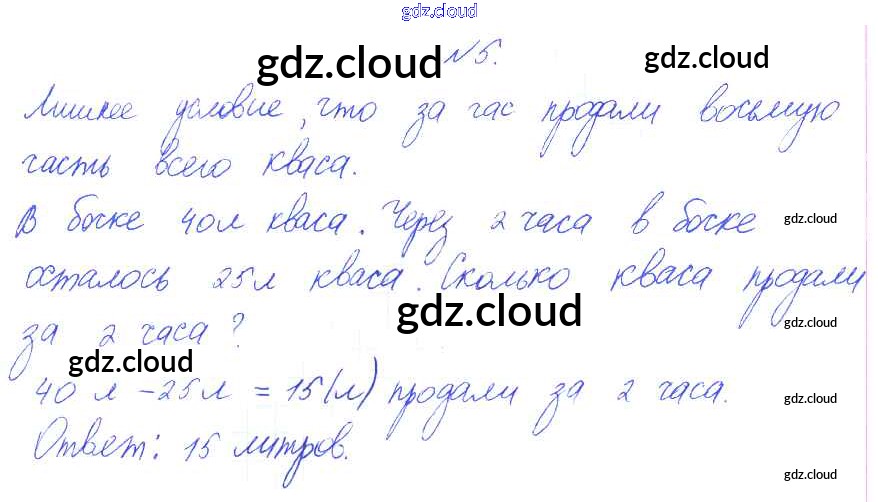 gdz.cloud
gdz.cloud № 5. gdz.cloud
Лишнее условие, что за час продали восьмую
часть всего кваса.
В бочке 40л кваса. Через 2 часа в бочке gdz.cloud
осталось 25л кваса. Сколько кваса продали
за 2 часа? gdz.cloud gdz.cloud
gdz.cloud
40 л - 25 л = 15 (л) продали за 2 часа. gdz.cloud
Ответ: 15 литров.
gdz.cloud